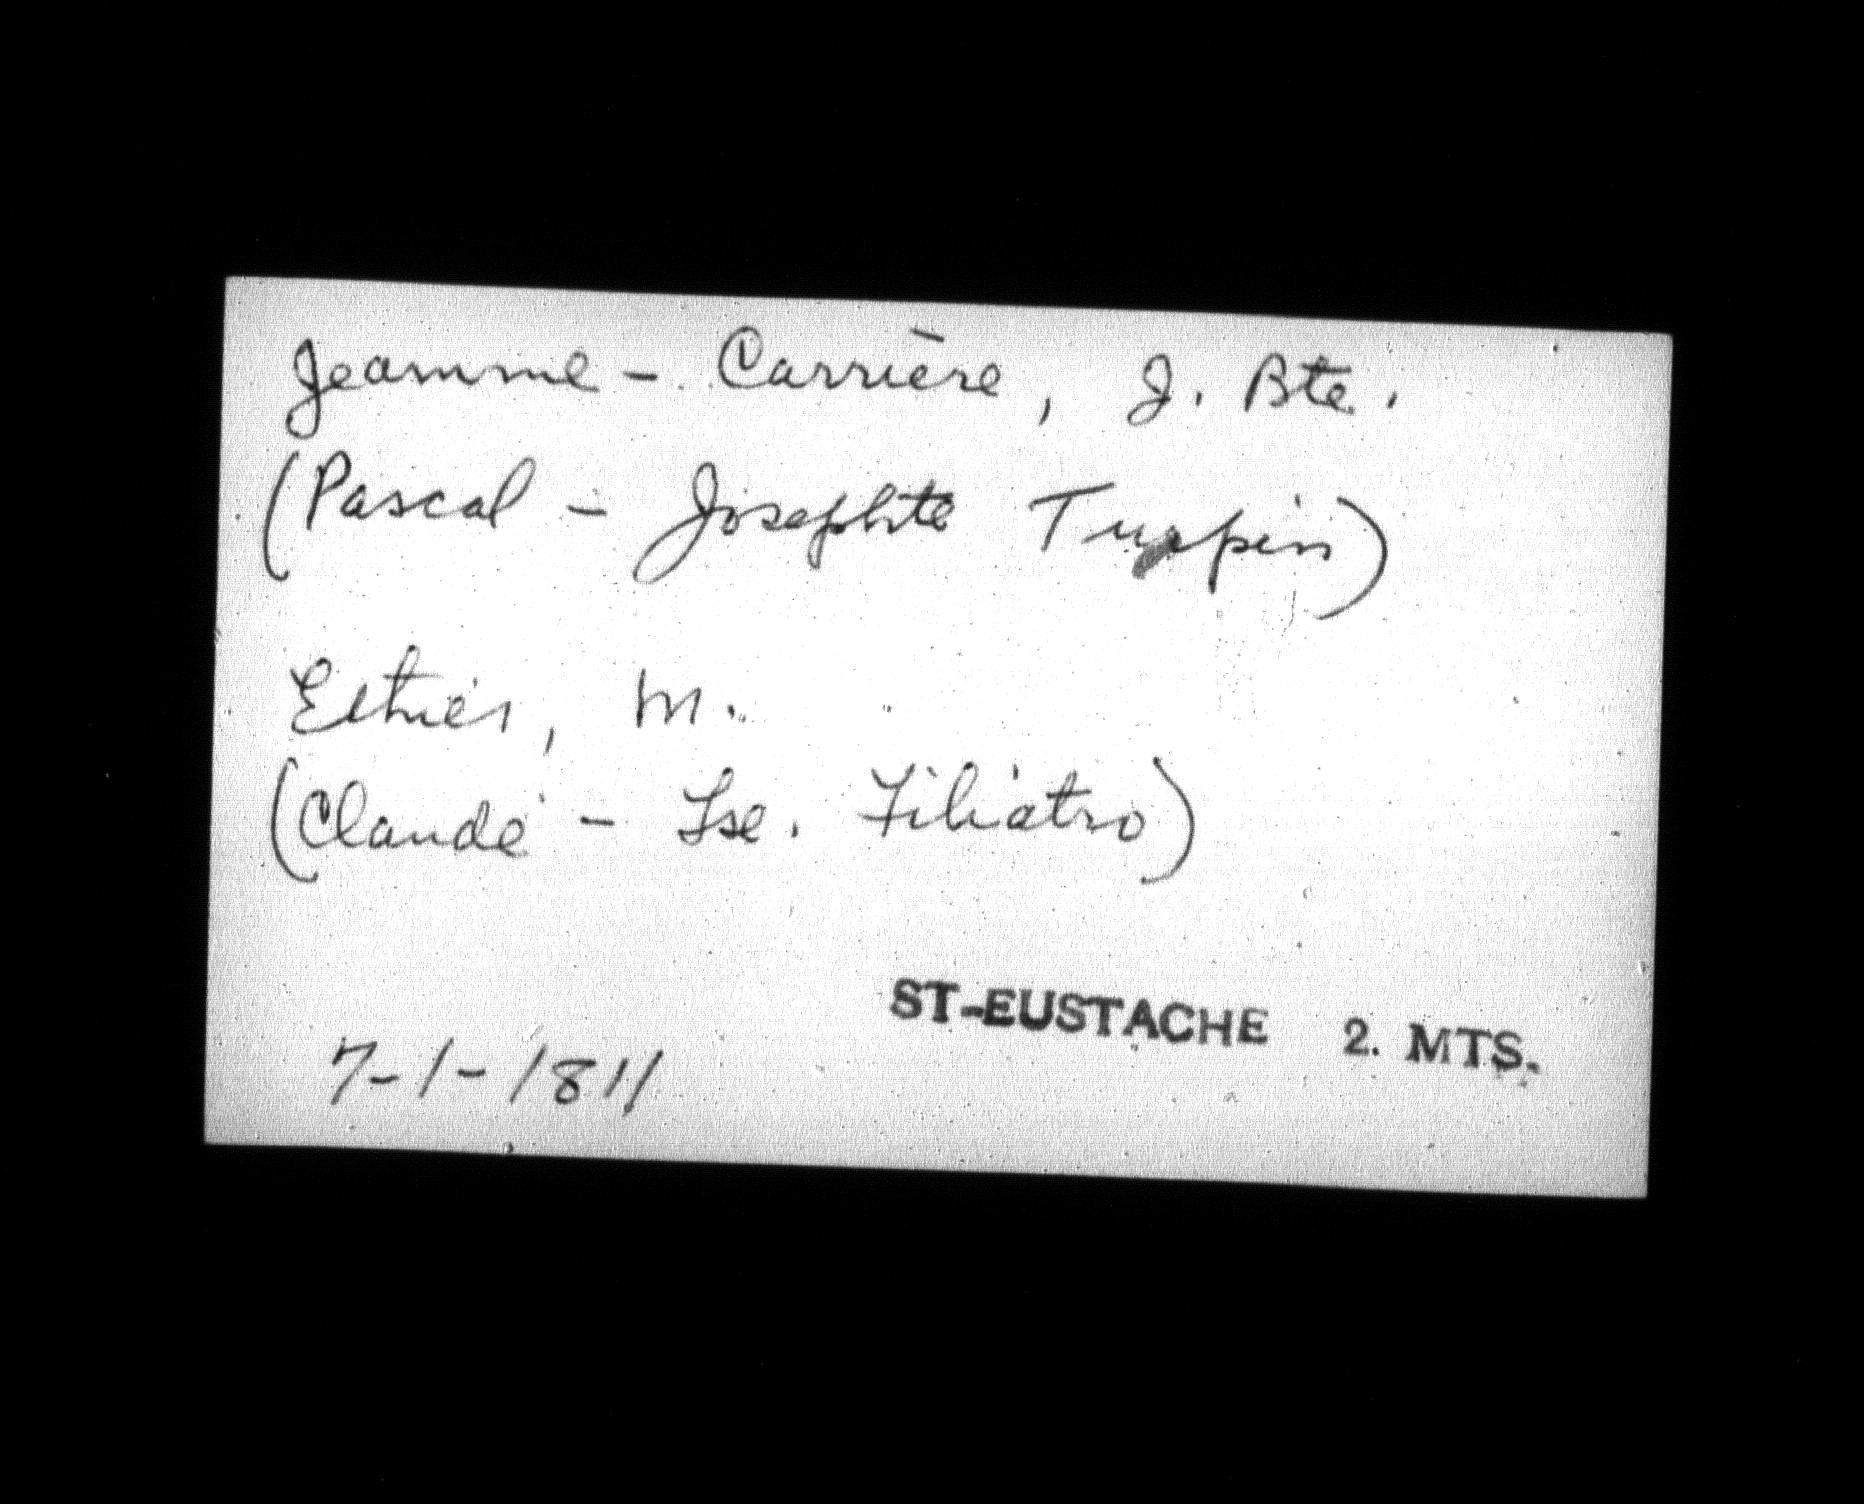 Jeamme - Carrière, J. Bte.
(Pascal - Josephte Turpin)
Ethier, M.
(Claude - Fse. Filiatro)
ST-EUSTACHE 2. MTS.
7-1-1811